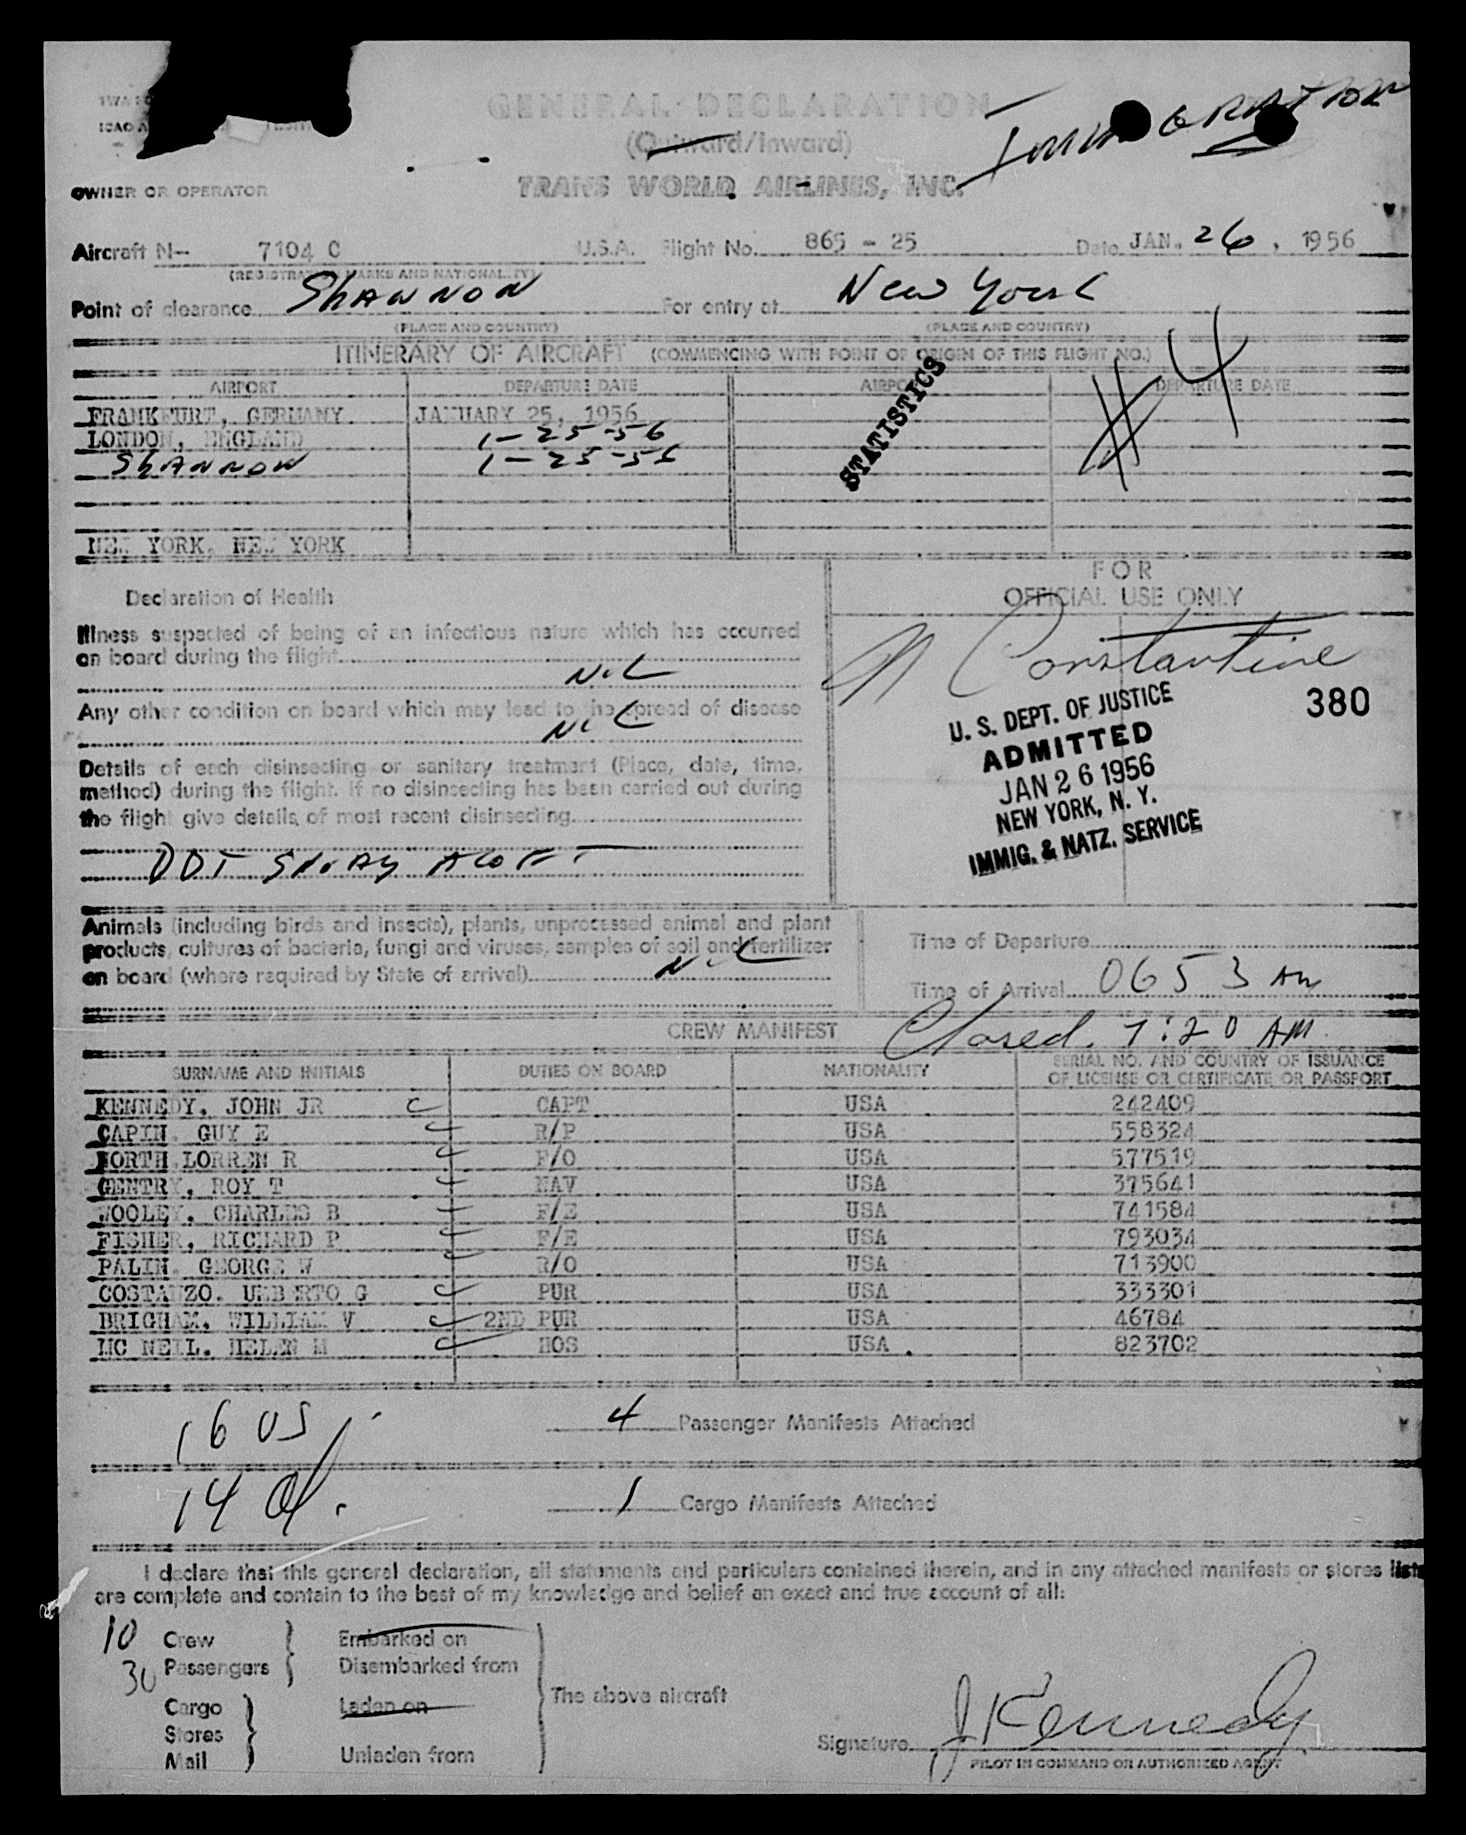 GENERAL DECLARATION
(Outward/Inward)
IMMIGRATION
OWNER OR OPERATOR
TRANS WORLD AIRLINES, INC.
Aircraft N- 7104 C U.S.A. Flight No. 865 - 25 Date JAN. 26, 1956
(REGISTRATION MARKS AND NATIONALITY)
Point of clearance Shannon For entry at New York
(PLACE AND COUNTRY) (PLACE AND COUNTRY)
ITINERARY OF AIRCRAFT (COMMENCING WITH POINT OF ORIGIN OF THIS FLIGHT NO.)
#4
AIRPORT DEPARTURE DATE AIRPORT DEPARTURE DATE
FRANKFURT, GERMANY JANUARY 25, 1956
LONDON, ENGLAND 1-25-56
Shannon 1-25-56
STATISTICS
NEW YORK, NEW YORK
FOR
OFFICIAL USE ONLY
Declaration of Health
Illness suspected of being of an infectious nature which has occurred
on board during the flight
Nil
Any other condition on board which may lead to the spread of disease
Nil
Details of each disinsecting or sanitary treatment (Place, date, time,
method) during the flight. If no disinsecting has been carried out during
the flight give details of most recent disinsecting
DDT SPRAY ALOFT
Constantine
380
U. S. DEPT. OF JUSTICE
ADMITTED
JAN 26 1956
NEW YORK, N. Y.
IMMIG. & NATZ. SERVICE
Animals (including birds and insects), plants, unprocessed animal and plant
products, cultures of bacteria, fungi and viruses, samples of soil and fertilizer
on board (where required by State of arrival)
Nil
Time of Departure
Time of Arrival 0653 AM
Closed. 7:20 AM
CREW MANIFEST
SURNAME AND INITIALS DUTIES ON BOARD NATIONALITY SERIAL NO. AND COUNTRY OF ISSUANCE
OF LICENSE OR CERTIFICATE OR PASSPORT
KENNEDY, JOHN JR CAPT USA 242409
CAPIN, GUY E R/P USA 558324
NORTH, LORREN R F/O USA 577519
GENTRY, ROY T NAV USA 375641
WOOLEY, CHARLES B F/E USA 741584
FISHER, RICHARD P F/E USA 793034
PALIN, GEORGE W R/O USA 713900
COSTANZO, UMBERTO G PUR USA 333301
BRIGHAM, WILLIAM V 2ND PUR USA 46784
MC NEIL, HELEN M HOS USA 823702
16 US
4 Passenger Manifests Attached
14 al.
1 Cargo Manifests Attached
I declare that this general declaration, all statements and particulars contained therein, and in any attached manifests or stores list
are complete and contain to the best of my knowledge and belief an exact and true account of all:
10 Crew Embarked on
30 Passengers Disembarked from
Cargo Laden on
Stores
Mail Unladen from
The above aircraft
Signature J Kennedy
PILOT IN COMMAND OR AUTHORIZED AGENT